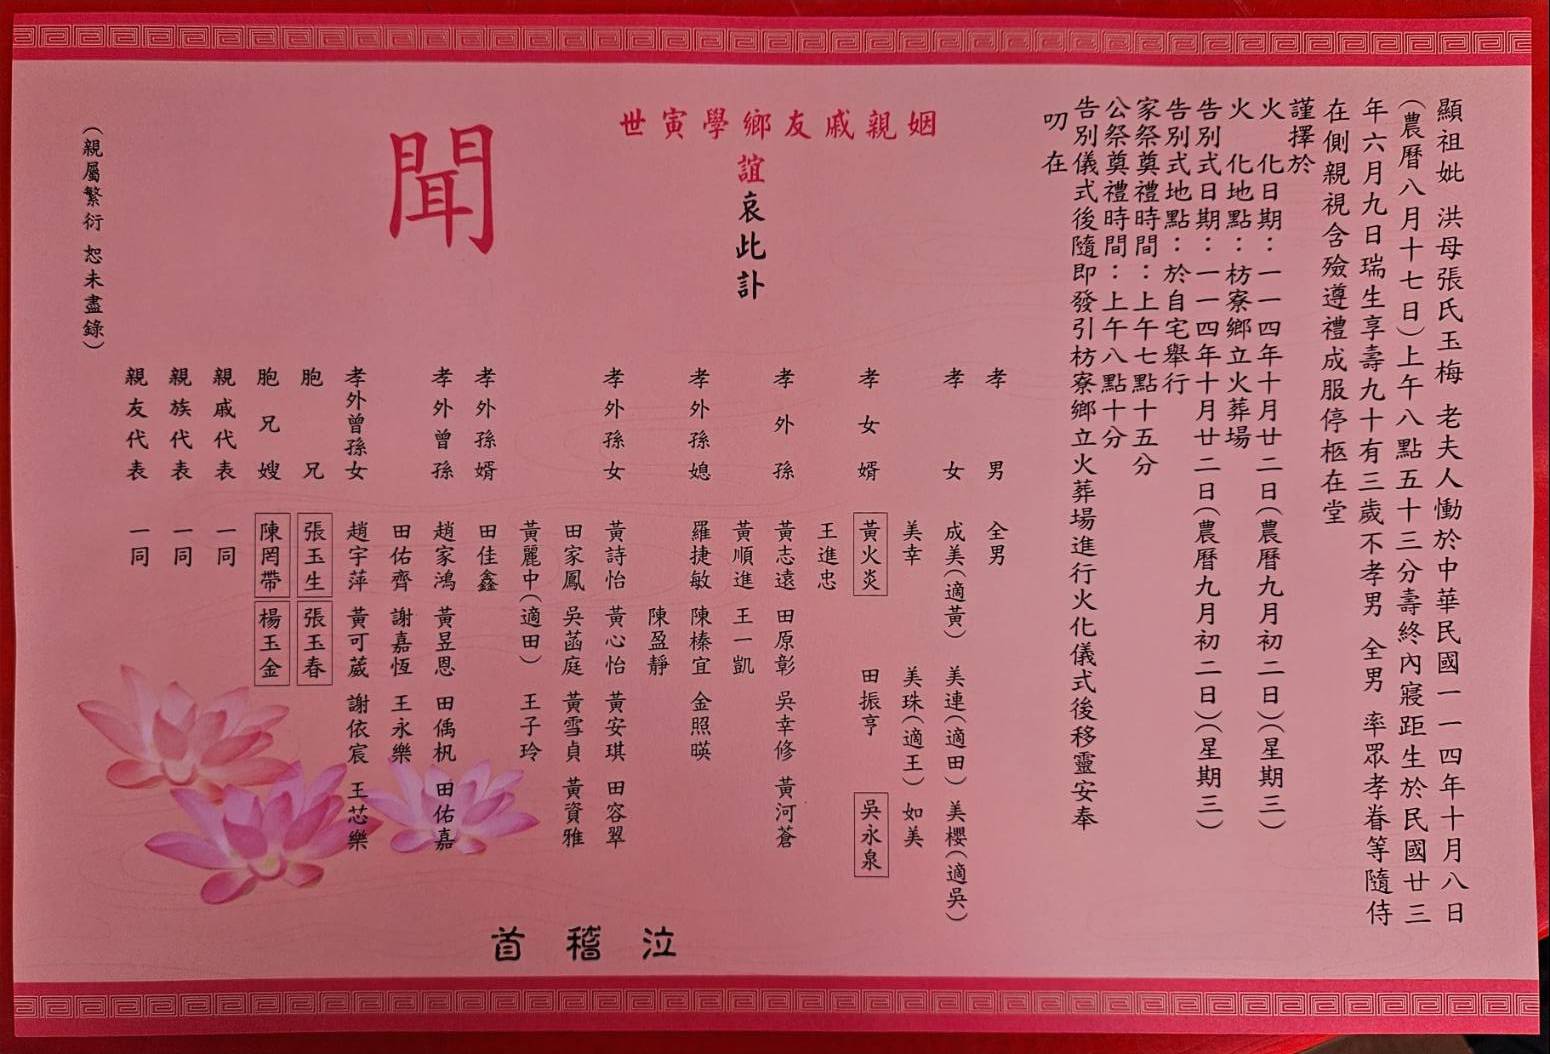 顯祖妣 洪母張氏玉梅 老夫人慟於中華民國一一四年十月八日
(農曆八月十七日)上午八點五十三分壽終內寢距生於民國廿三
年六月九日瑞生享壽九十有三歲不孝男 全男 率眾孝眷等隨侍
在側親視含殮遵禮成服停柩在堂
謹擇於
火 化日期：一一四年十月廿二日(農曆九月初二日)(星期三)
火 化地點：枋寮鄉立火葬場
告別式日期：一一四年十月廿二日(農曆九月初二日)(星期三)
告別式地點：於自宅舉行
家祭奠禮時間：上午七點十五分
公祭奠禮時間：上午八點十分
告別儀式後隨即發引枋寮鄉立火葬場進行火化儀式後移靈安奉
叨在
姻親戚友鄉學寅世
誼哀此訃
聞
孝男 全男
孝女 成美(適黃) 美連(適田) 美櫻(適吳)
美幸 美珠(適王) 如美
孝女婿 黃火炎 田振亨 吳永泉
王進忠
孝外孫 黃志遠 田原彰 吳幸修 黃河蒼
黃順進 王一凱
孝外孫媳 羅捷敏 陳榛宜 金照暎
陳盈靜
孝外孫女 黃詩怡 黃心怡 黃安琪 田容翠
田家鳳 吳菡庭 黃雪貞 黃資雅
黃麗中(適田) 王子玲
孝外孫婿 田佳鑫
孝外曾孫 趙家鴻 黃昱恩 田偊朳 田佑嘉
田佑齊 謝嘉恆 王永樂
孝外曾孫女 趙宇萍 黃可葳 謝依宸 王芯樂
胞兄 張玉生 張玉春
胞兄嫂 陳罔帶 楊玉金
親戚代表 一同
親族代表 一同
親友代表 一同
泣稽首
(親屬繁衍 恕未盡錄)